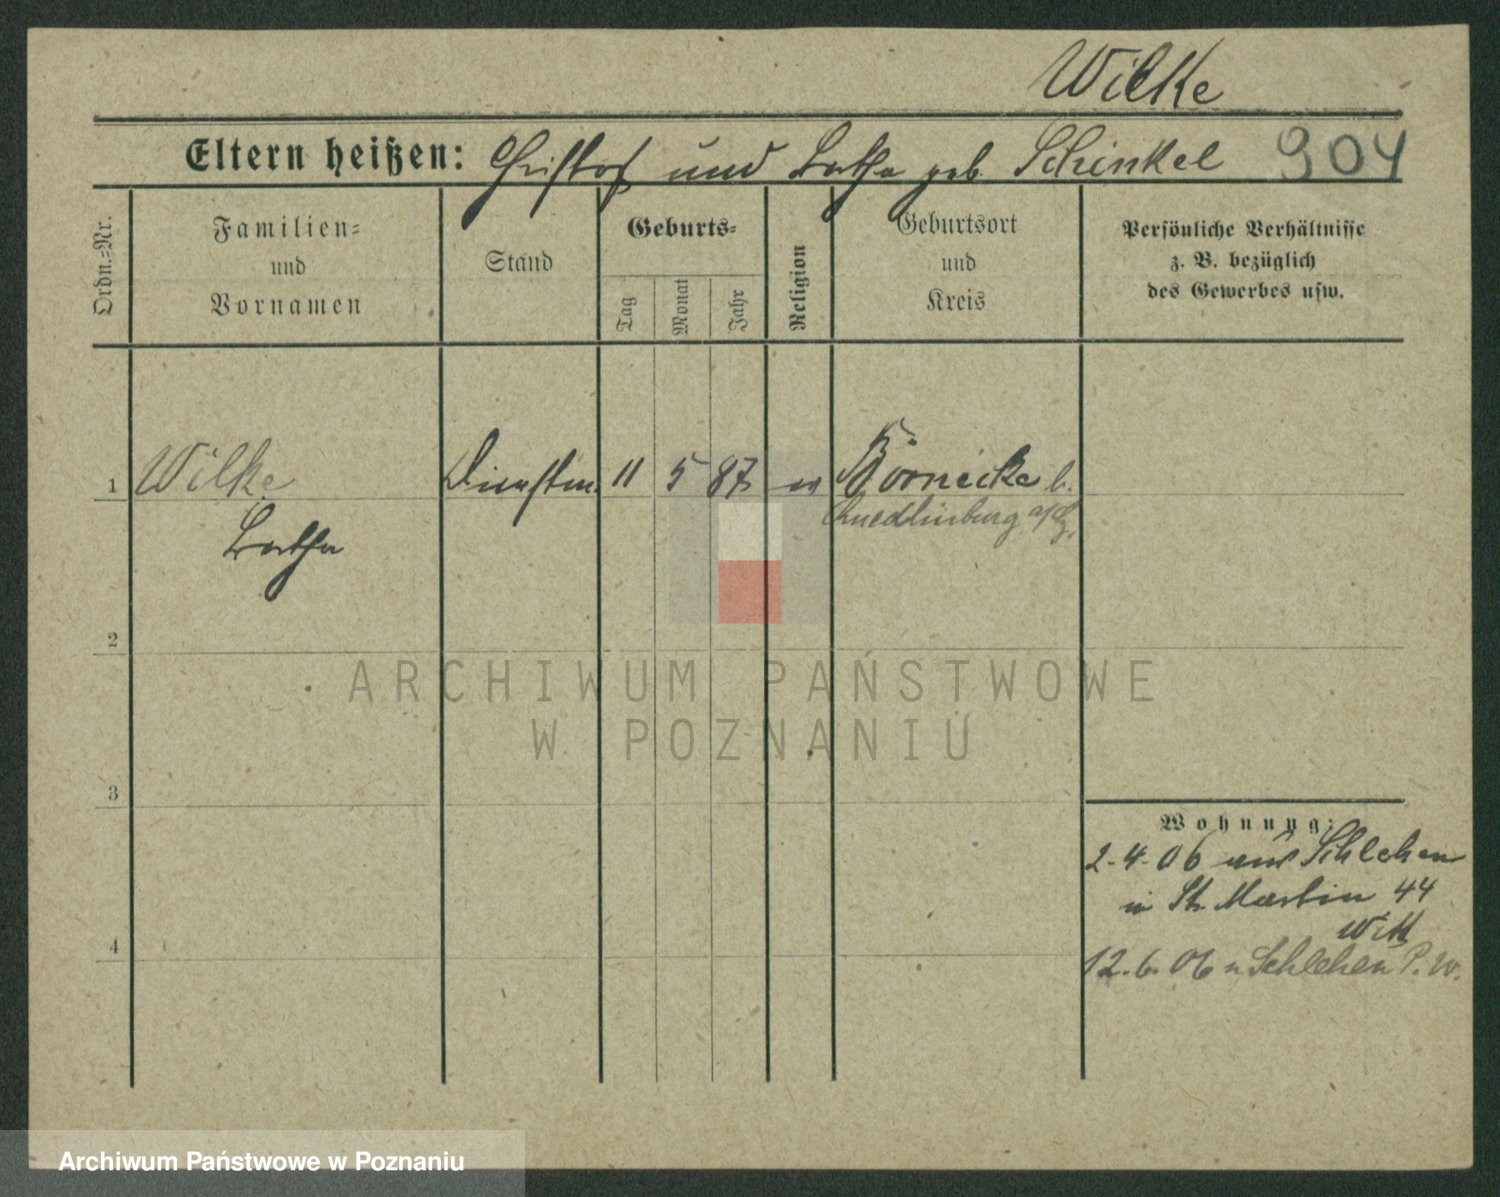 Wilke
Eltern heißen: Christof und Bertha geb. Schinkel 904
Ordn.=Nr.
Familien=
und
Vornamen
Stand
Geburts=
Tag
Monat
Jahr
Religion
Geburtsort
und
Kreis
Persönliche Verhältnisse
z. B. bezüglich
des Gewerbes usw.
1 Wilke Dienstm. 11 5 87 ev Börnecke b.
Quedlinburg a/H.
Bertha
2
3
4
Wohnung:
2.4.06 aus Schlehen
in St. Martin 44
Witt
12.6.06 n Schlehen P. W.
ARCHIWUM PAŃSTWOWE
W POZNANIU
Archiwum Państwowe w Poznaniu